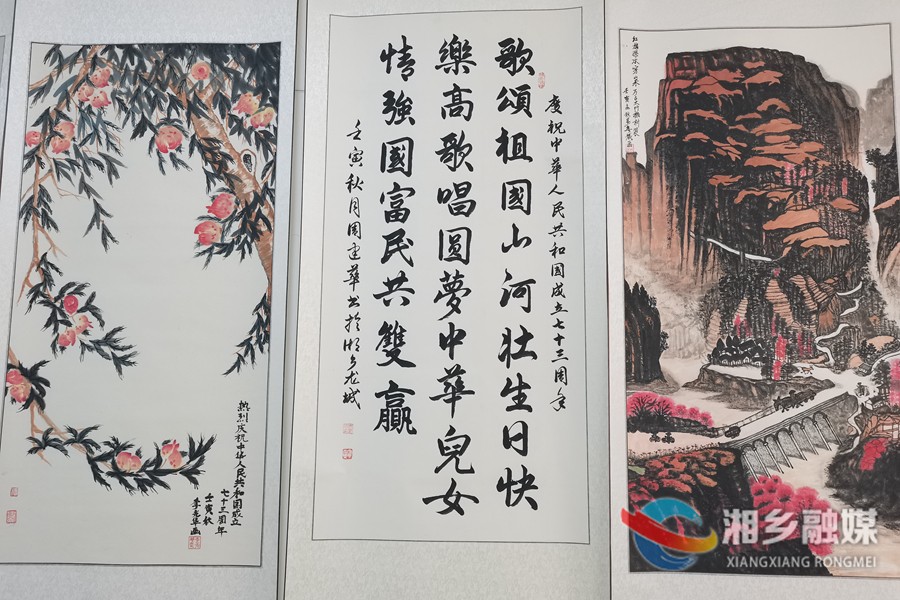 慶祝中華人民共和國成立七十三周年
歌頌祖國山河壯生日快
樂高歌唱圓夢中華兒女
情強國富民共雙贏
壬寅秋月周建華書於湘乡龙城
热烈庆祝中华人民共和国成立
七十三周年
壬寅秋
湘乡融媒
XIANGXIANG RONGMEI